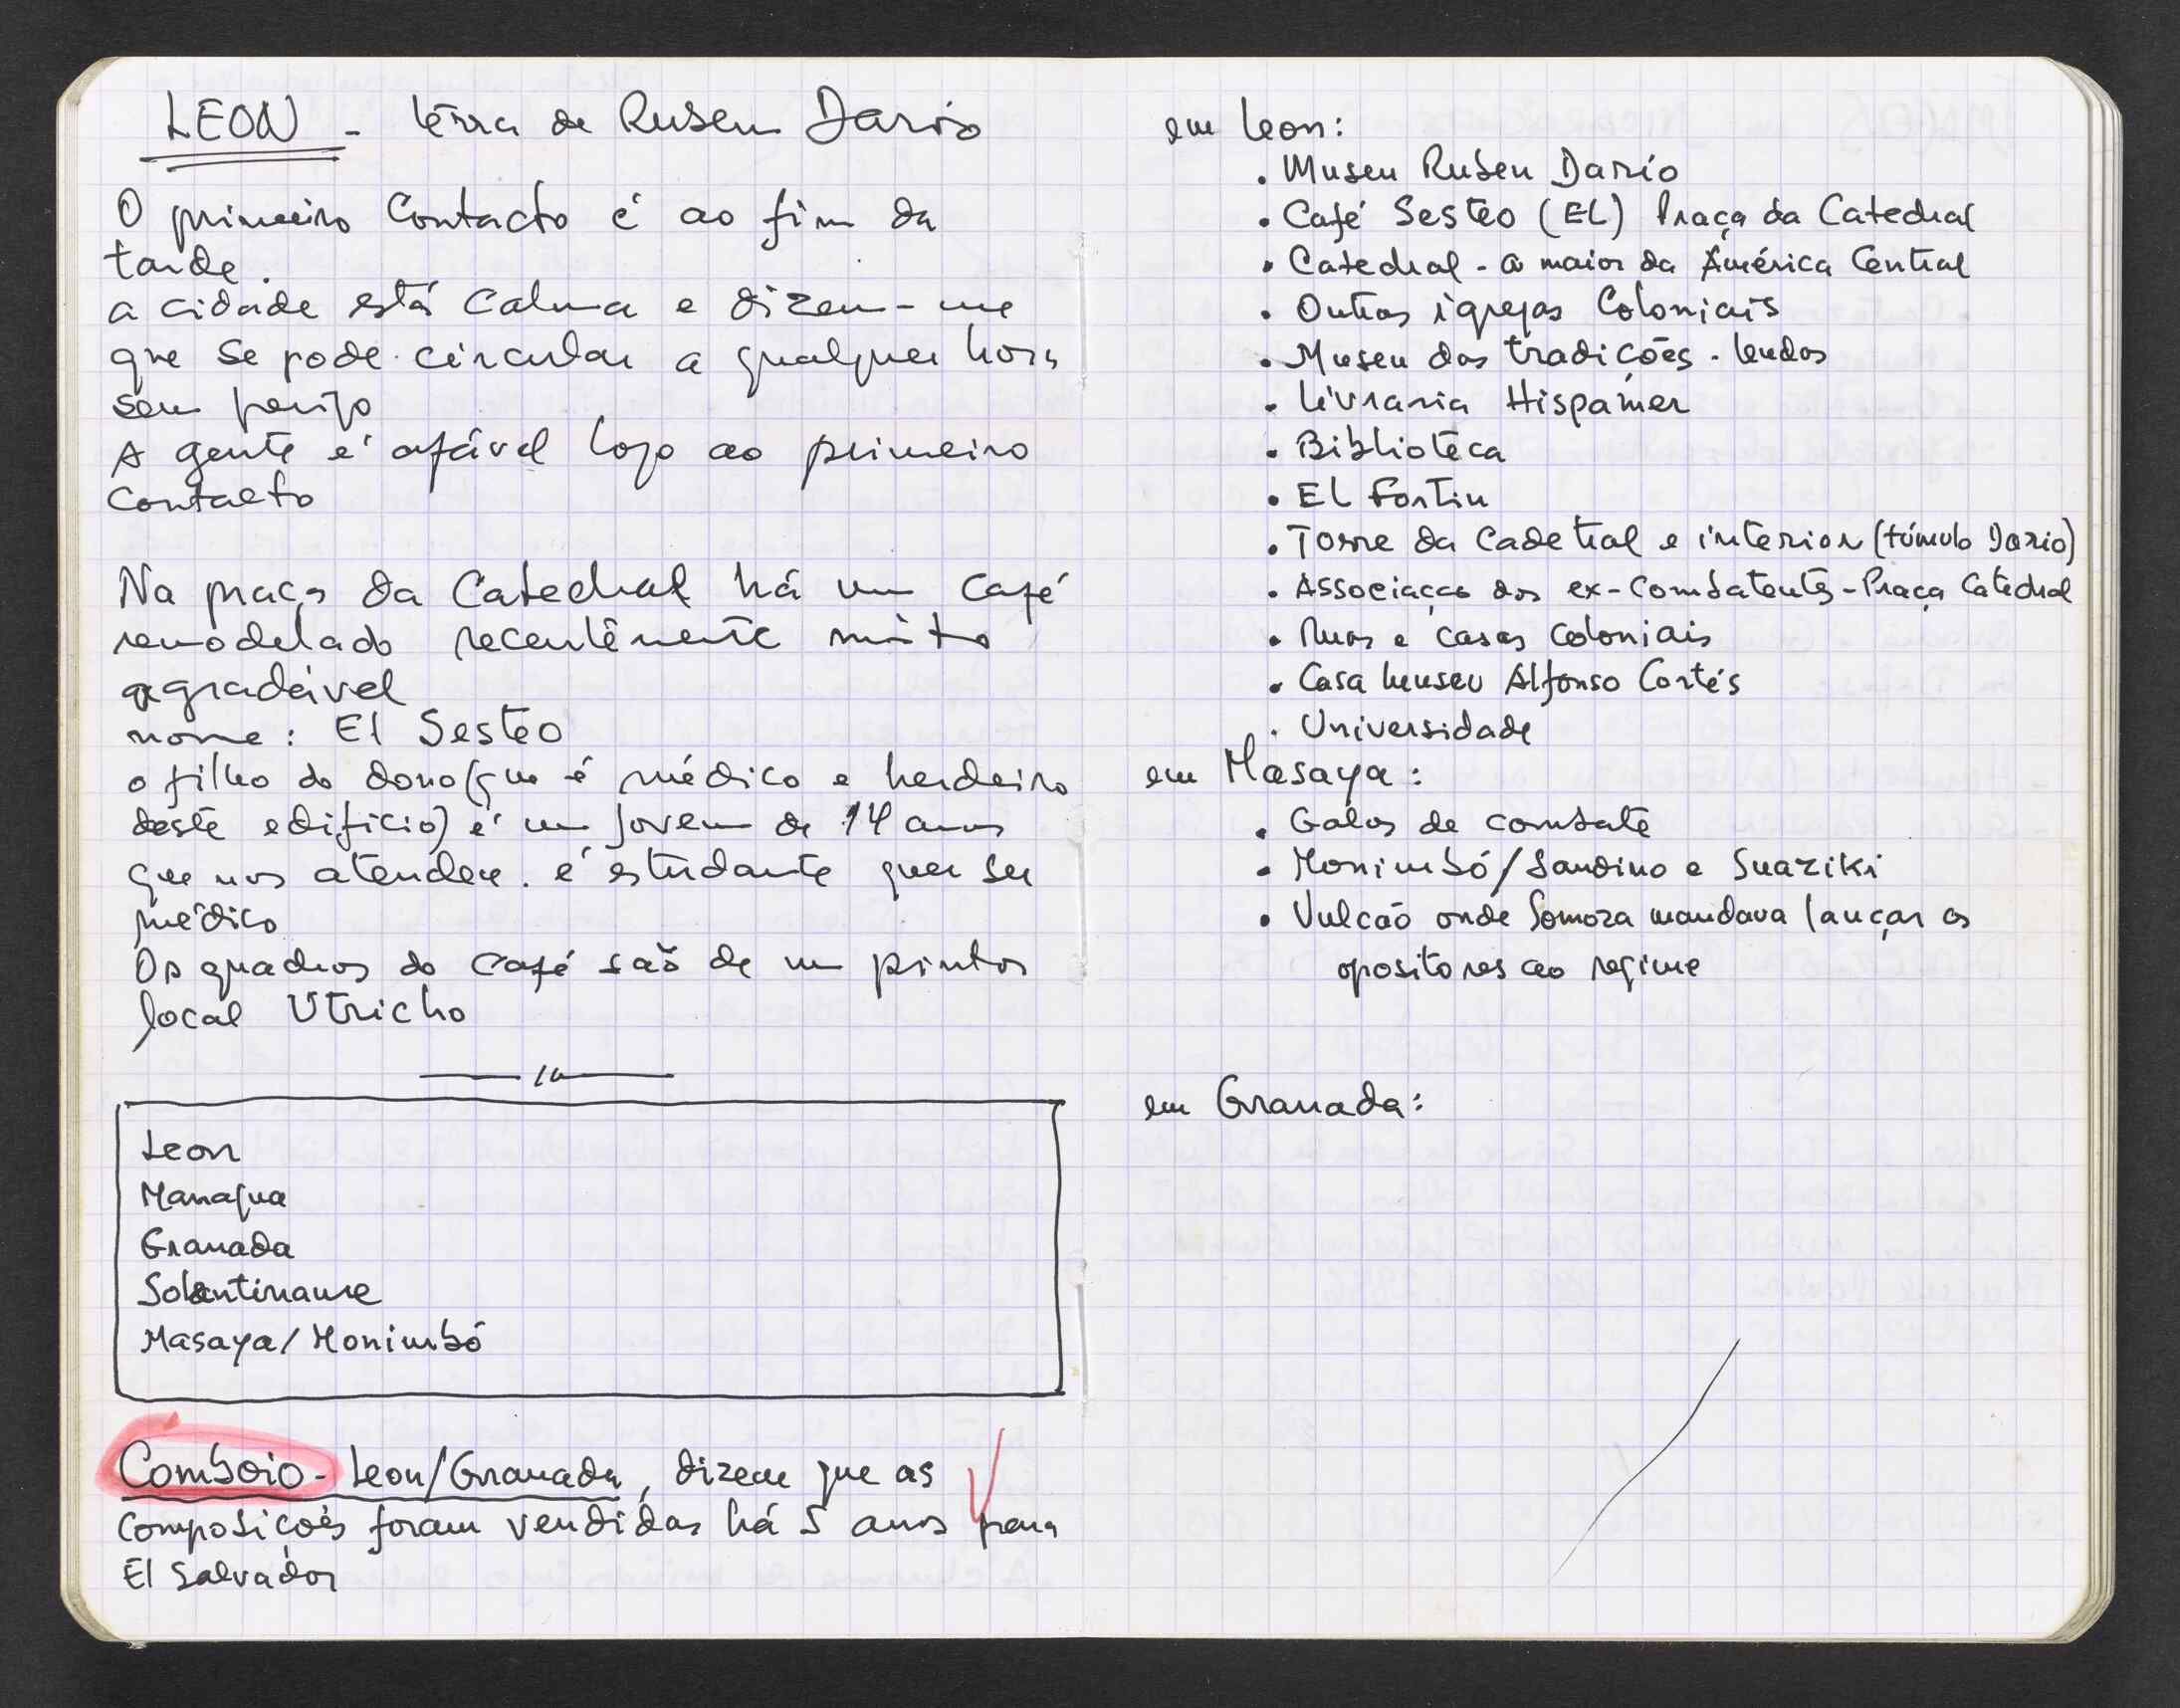 LEON - terra de Ruben Dario
O primeiro contacto é ao fim da
tarde.
a cidade está calma e dizem-me
que se pode circular a qualquer hora
sem perigo
A gente é afável logo ao primeiro
contacto
Na praça da Catedral há um café
remodelado recentemente muito
agradável
nome: El Sesteo
o filho do dono (que é médico e herdeiro
deste edifício) é um jovem de 14 anos
que nos atendeu. é estudante quer ser
médico
Os quadros do café são de um pintor
local Utricho
Leon
Managua
Granada
Solentiname
Masaya/Monimbó
Comboio - Leon/Granada, dizem que as
composições foram vendidas há 5 anos para
El Salvador
em Leon:
. Museu Ruben Dario
. Café Sesteo (EL) Praça da Catedral
. Catedral - a maior da América Central
. Outras igrejas Coloniais
. Museu das tradições - lendas
. Livraria Hispamer
. Biblioteca
. El Fortin
. Torre da Cadetral e interior (túmulo Dario)
. Associaçao dos ex-Combatentes - Praça Catedral
. Ruas e casas coloniais
. Casa museu Alfonso Cortés
. Universidade
em Masaya:
. Galos de combate
. Monimbó/Sandino e Suaziki
. Vulcão onde Somoza mandava lançar os
opositores ao regime
em Granada: